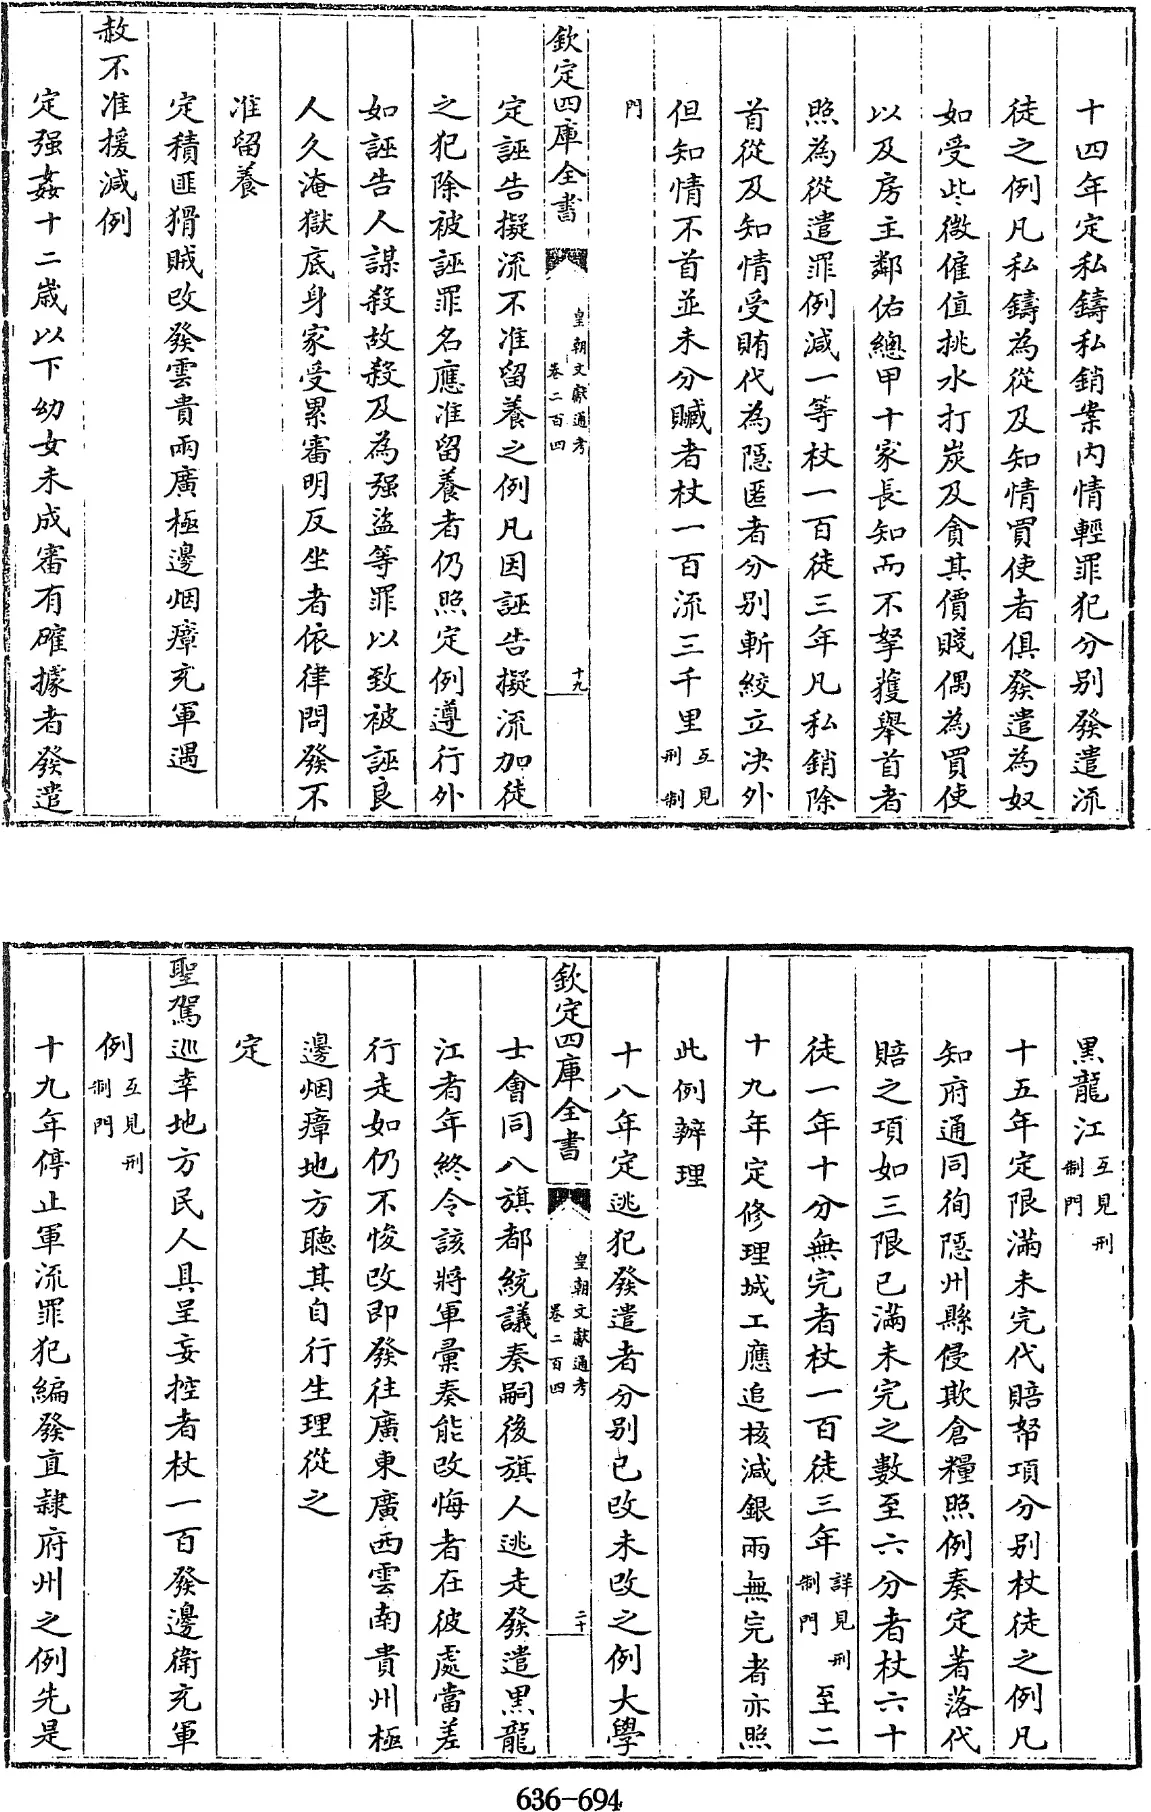 十四年定私鑄私銷案内情輕罪犯分别發遣流
徒之例凡私鑄為從及知情買使者俱發遣為奴
如受些㣲僱值挑水打炭及貪其價賤偶為買使
以及房主鄰佑總甲十家長知而不拏獲舉首者
照為從遣罪例減一等杖一百徒三年凡私銷除
首從及知情受賄代為隱匿者分别斬絞立决外
但知情不首並未分贓者杖一百流三千里互見刑制
門
欽定四庫全書
皇朝文獻通考
卷二百四
十九
定誣告擬流不准留養之例凡因誣告擬流加徒
之犯除被誣罪名應准留養者仍照定例遵行外
如誣告人謀殺故殺及為强盜等罪以致被誣良
人久淹獄底身家受累審明反坐者依律問發不
准留養
定積匪猾賊改發雲貴兩廣極邊烟瘴充軍遇
赦不准援減例
定强姦十二歲以下幼女未成審有確據者發遣
黑龍江互見刑制門
十五年定限滿未完代賠帑項分别杖徒之例凡
知府通同徇隱州縣侵欺倉糧照例奏定著落代
賠之項如三限已滿未完之數至六分者杖六十
徒一年十分無完者杖一百徒三年詳見刑制門至二
十九年定修理城工應追核減銀兩無完者亦照
此例辦理
十八年定逃犯發遣者分别已改未改之例大學
欽定四庫全書
皇朝文獻通考
卷二百四
二十
士會同八旗都統議奏嗣後旗人逃走發遣黑龍
江者年終令該將軍彙奏能改悔者在彼處當差
行走如仍不悛改即發往廣東廣西雲南貴州極
邊烟瘴地方聽其自行生理從之
定
聖駕巡幸地方民人具呈妄控者杖一百發邊衛充軍
例互見刑制門
十九年停止軍流罪犯編發直隸府州之例先是
636-694